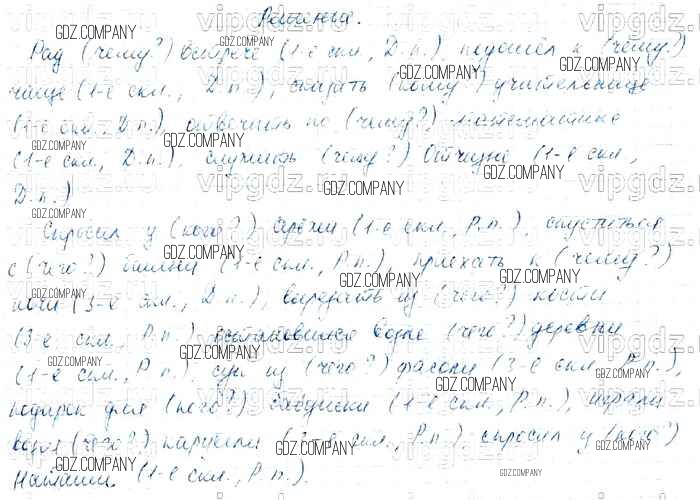 Решение.
Рад (чему?) встрече (1-е скл., Д.п.), подошёл к (чему?)
чаще (1-е скл., Д.п.), сказать (кому?) учительнице
(1-е скл., Д.п.), отвечать по (чему?) математике
(1-е скл., Д.п.), служить (чему?) Отчизне (1-е скл.,
Д.п.)
Спросил у (кого?) Серёжи (1-е скл., Р.п.), спуститься
с (чего?) башни (1-е скл., Р.п.), приехать к (чему?)
ночи (3-е скл., Д.п.), вырезать из (чего?) кости
(3-е скл., Р.п.), остановился возле (чего?) деревни
(1-е скл., Р.п.), суп из (чего?) фасоли (3-е скл., Р.п.),
подарок для (кого?) бабушки (1-е скл., Р.п.), играли
возле (чего?) карусели (3-е скл., Р.п.), спросил у (кого?)
Наташи (1-е скл., Р.п.).